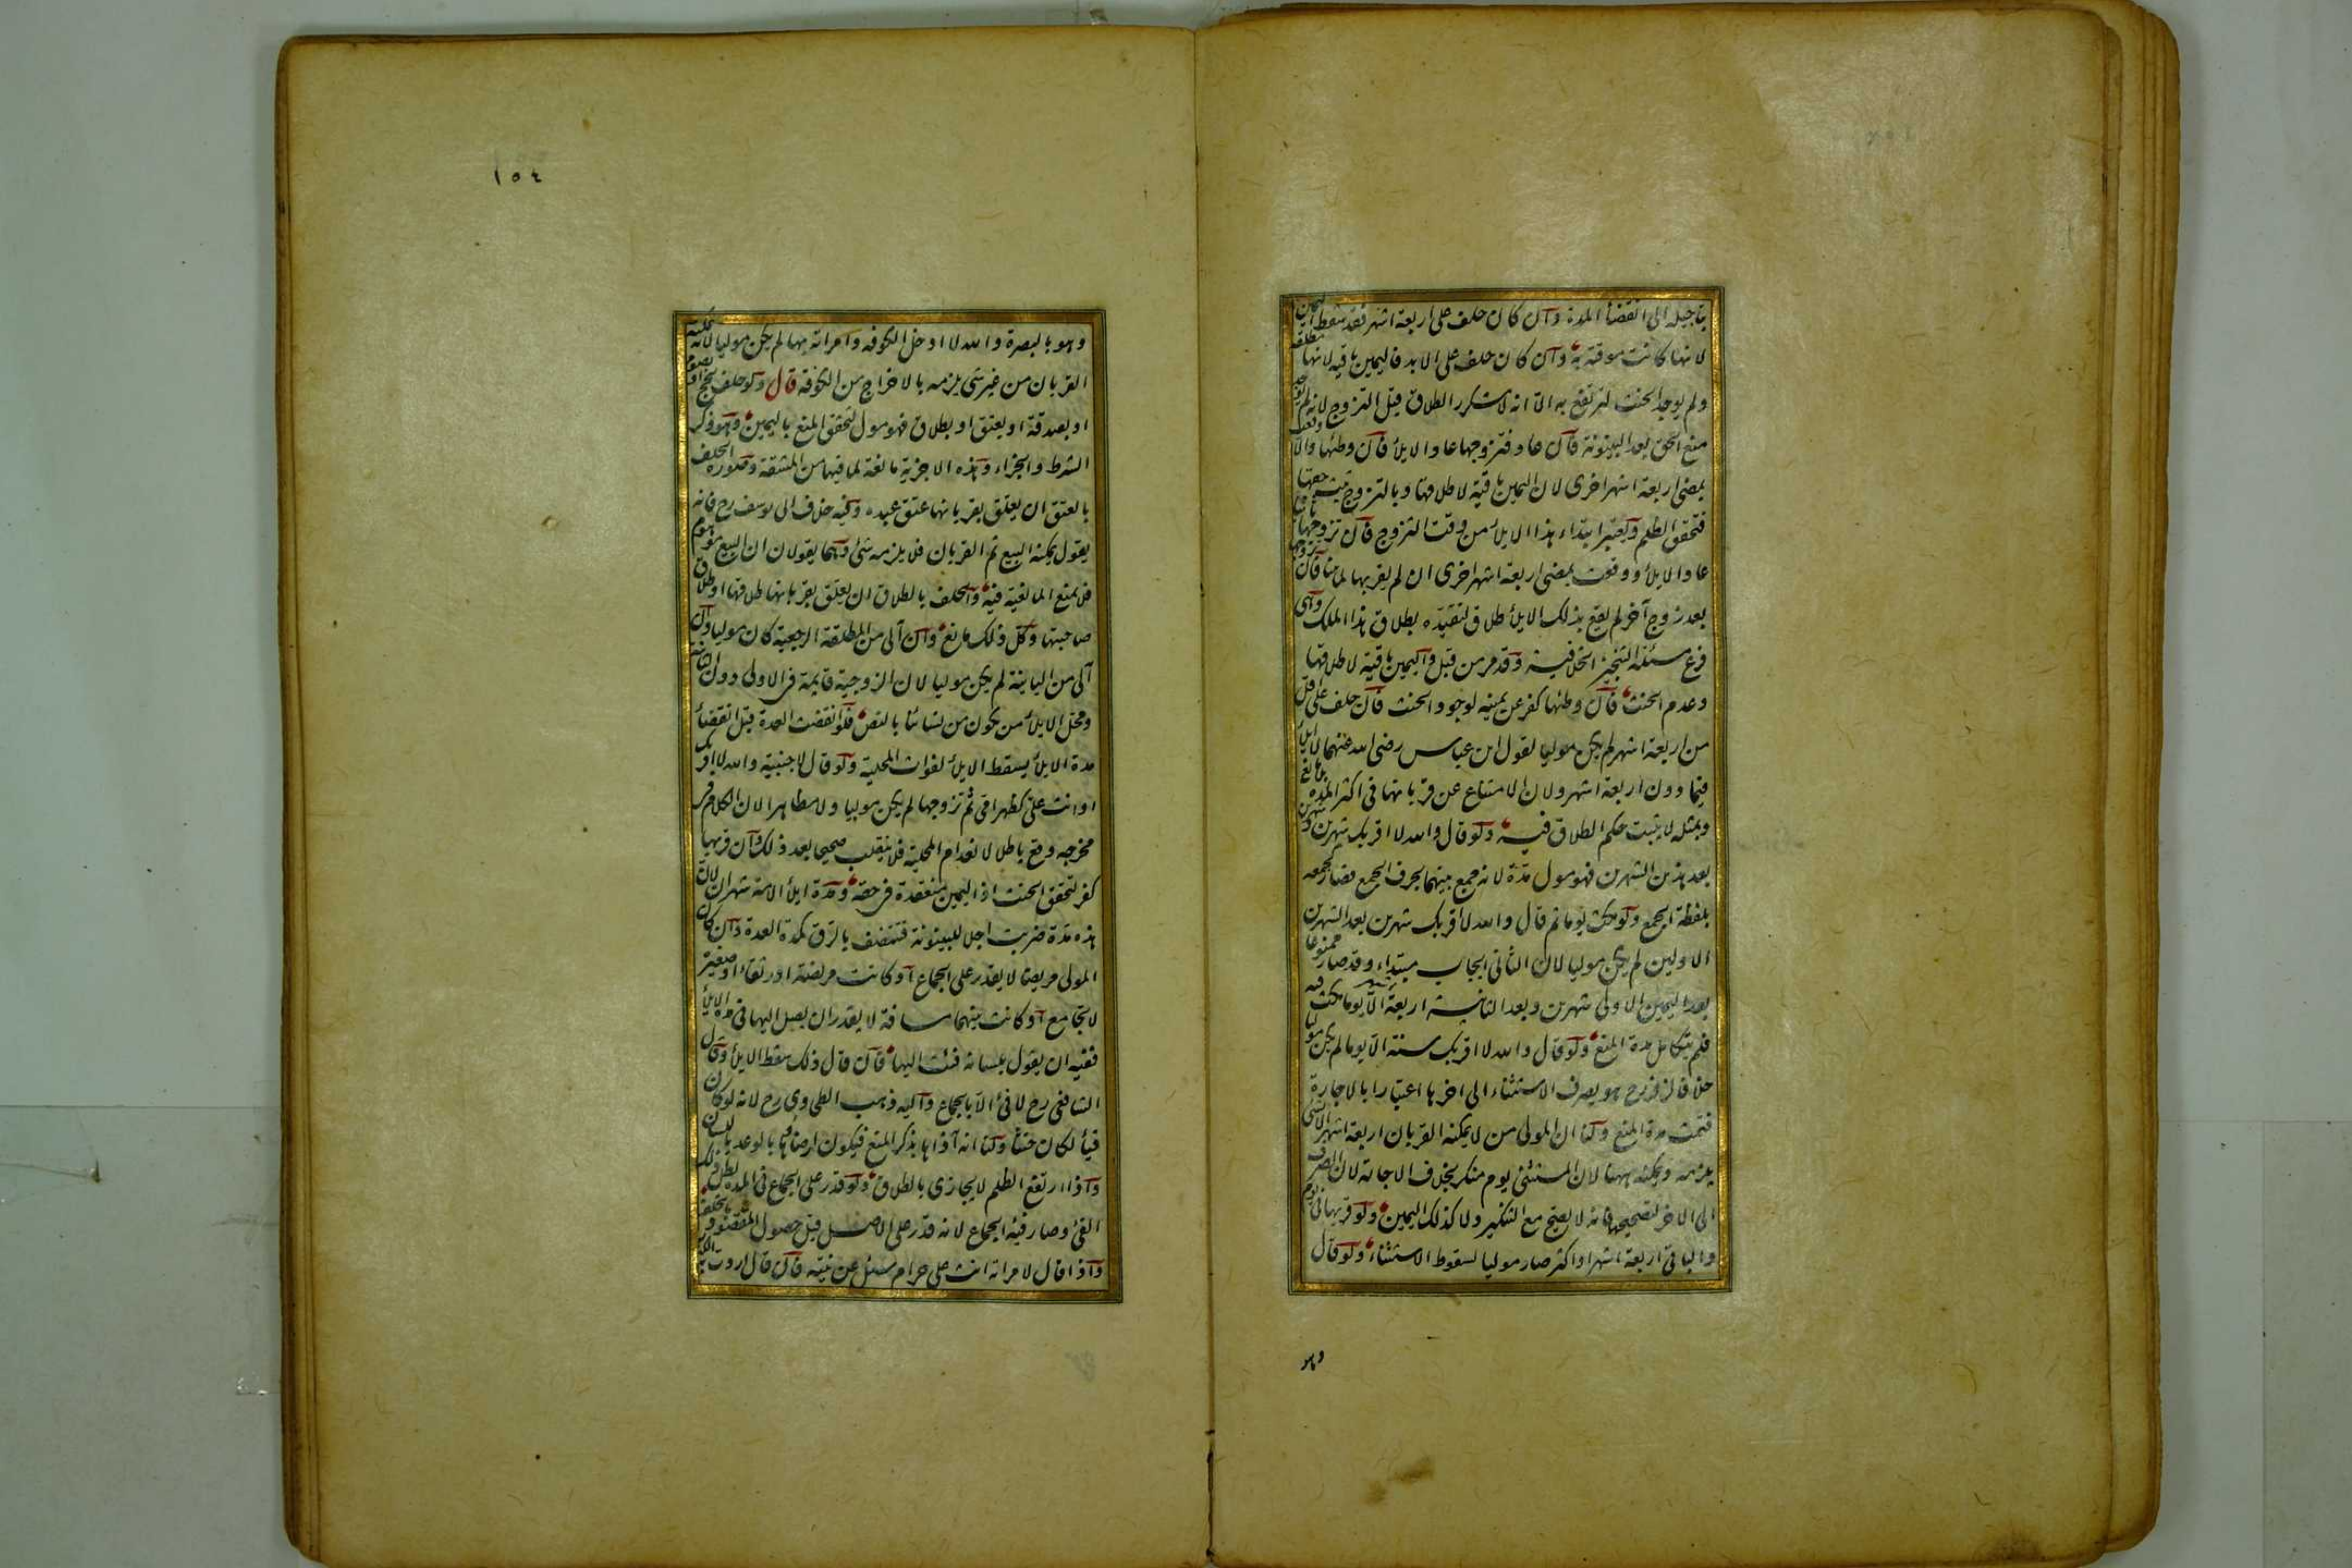 بتاجيله الى انقضاء المدة وان كان حلف على اربعة اشهر فقد سقط اليمين
لانها كانت موقتة به وان كان حلف على الابد فاليمين باقية لانها مطلقة
ولم يوجد الحنث لترتفع به الا انه لا يتكرر الطلاق قبل التزوج لانه لم يوجد
منع الحق بعد البينونة فان عاد فتزوجها عاد الايلاء فان وطئها والا وقعت
بمضى اربعة اشهر اخرى لان اليمين باقية لاطلاقها وبالتزوج ثبت حقها
فتحقق الظلم ويعتبر ابتداء هذا الايلاء من وقت التزوج فان تزوجها ثالثا
عاد الايلاء ووقعت بمضى اربعة اشهر اخرى ان لم يقربها لما بينا فان تزوجها
بعد زوج آخر لم يقع بذلك الايلاء طلاق لتقيده بطلاق هذا الملك وهى
فرع مسئلة التنجيز الخلافية وقد مر من قبل واليمين باقية لاطلاقها
وعدم الحنث فان وطئها كفر عن يمينه لوجود الحنث فان حلف على اقل
من اربعة اشهر لم يكن موليا لقول ابن عباس رضى الله عنهما لا ايلاء
فيما دون اربعة اشهر ولان الامتناع عن قربانها فى اكثر المدة بلا مانع
وبمثله لا يثبت حكم الطلاق فيه ولو قال والله لا اقربك شهرين وشهرين
بعد هذين الشهرين فهو مول مدة لانه جمع بينهما بحرف الجمع فصار كجمعه
بلفظة الجمع ولو مكث يوما ثم قال والله لا اقربك شهرين بعد الشهرين
الاولين لم يكن موليا لان الثانى ايجاب مبتداء وقد صار ممنوعا
بعد اليمين الاولى شهرين وبعد الثانية اربعة الا يوما مكث فيه
فلم يتكامل مدة المنع ولو قال والله لا اقربك سنة الا يوما لم يكن موليا
خلافا لزفر رح هو يصرف الاستثناء الى اخرها اعتبارا بالاجارة
فتمت مدة المنع ولنا ان المولى من لا يمكنه القربان اربعة اشهر الا بشئ
يلزمه ويمكنه ههنا لان المستثنى يوم منكر بخلاف الاجارة لان الصرف
الى الاخر لتصحيحها فانه لا يصح مع التنكير ولا كذلك اليمين ولو قربها فى يوم
والباقى اربعة اشهر او اكثر صار موليا لسقوط الاستثناء ولو قال
وهو
١٥٤
وهو بالبصرة والله لا ادخل الكوفه وامراته بها لم يكن موليا لانه يمكنه
القربان من غير شئ يلزمه بالاخراج من الكوفة قال ولو حلف بحج او بصوم
او بصدقة او بعتق او بطلاق فهو مول لتحقق المنع باليمين وهو ذكر
الشرط والجزاء وهذه الاجزية مانعة لما فيها من المشقة وصورة الحلف
بالعتق ان يعلق بقربانها عتق عبده وفيه خلاف ابى يوسف رح فانه
يقول يمكنه البيع ثم القربان فلا يلزمه شئ وهما يقولان ان البيع موهوم
فلا يمنع المانعية فيه والحلف بالطلاق ان يعلق بقربانها طلاقها او طلاق
صاحبتها وكل ذلك مانع وان آلى من المطلقة الرجعية كان موليا وان
آلى من الباينة لم يكن موليا لان الزوجية قايمة فى الاولى دون الثانية
ومحل الايلاء من يكون من نسائنا بالنص فلو انقضت العدة قبل انقضاء
مدة الايلاء يسقط الايلاء لفوات المحلية ولو قال لاجنبية والله لا اقربك
او انت على كظهر امى ثم تزوجها لم يكن موليا ولا مظاهرا لان الكلام فى
مخرجه وقع باطلا لانعدام المحلية فلا ينقلب صحيحا بعد ذلك وان قربها
كفر لتحقق الحنث اذ اليمين منعقدة فى حقه ومدة ايلاء الامة شهران لان
هذه مدة ضربت اجلا للبينونة فتنصف بالرق كمدة العدة وان كان
المولى مريضا لا يقدر على الجماع او كانت مريضة او رتقاء او صغيرة
لا تجامع او كانت بينهما مسافة لا يقدر ان يصل اليها فى مدة الايلاء
ففيئه ان يقول بلسانه فئت اليها فان قال ذلك سقط الايلاء وقال
الشافعى رح لا فئ الا بالجماع واليه ذهب الطحاوى رح لانه لو كان
فيأ لكان حنثا ولنا انه آذاها بذكر المنع فيكون ارضاؤها بالوعد باللسان
واذا ارتفع الظلم لا يجازى بالطلاق ولو قدر على الجماع فى المدة بطل ذلك
الفئ وصار فيئه الجماع لانه قدر على الاصل قبل حصول المقصود بالخلف
واذا قال لامراته انت على حرام سئل عن نيته فان قال اردت